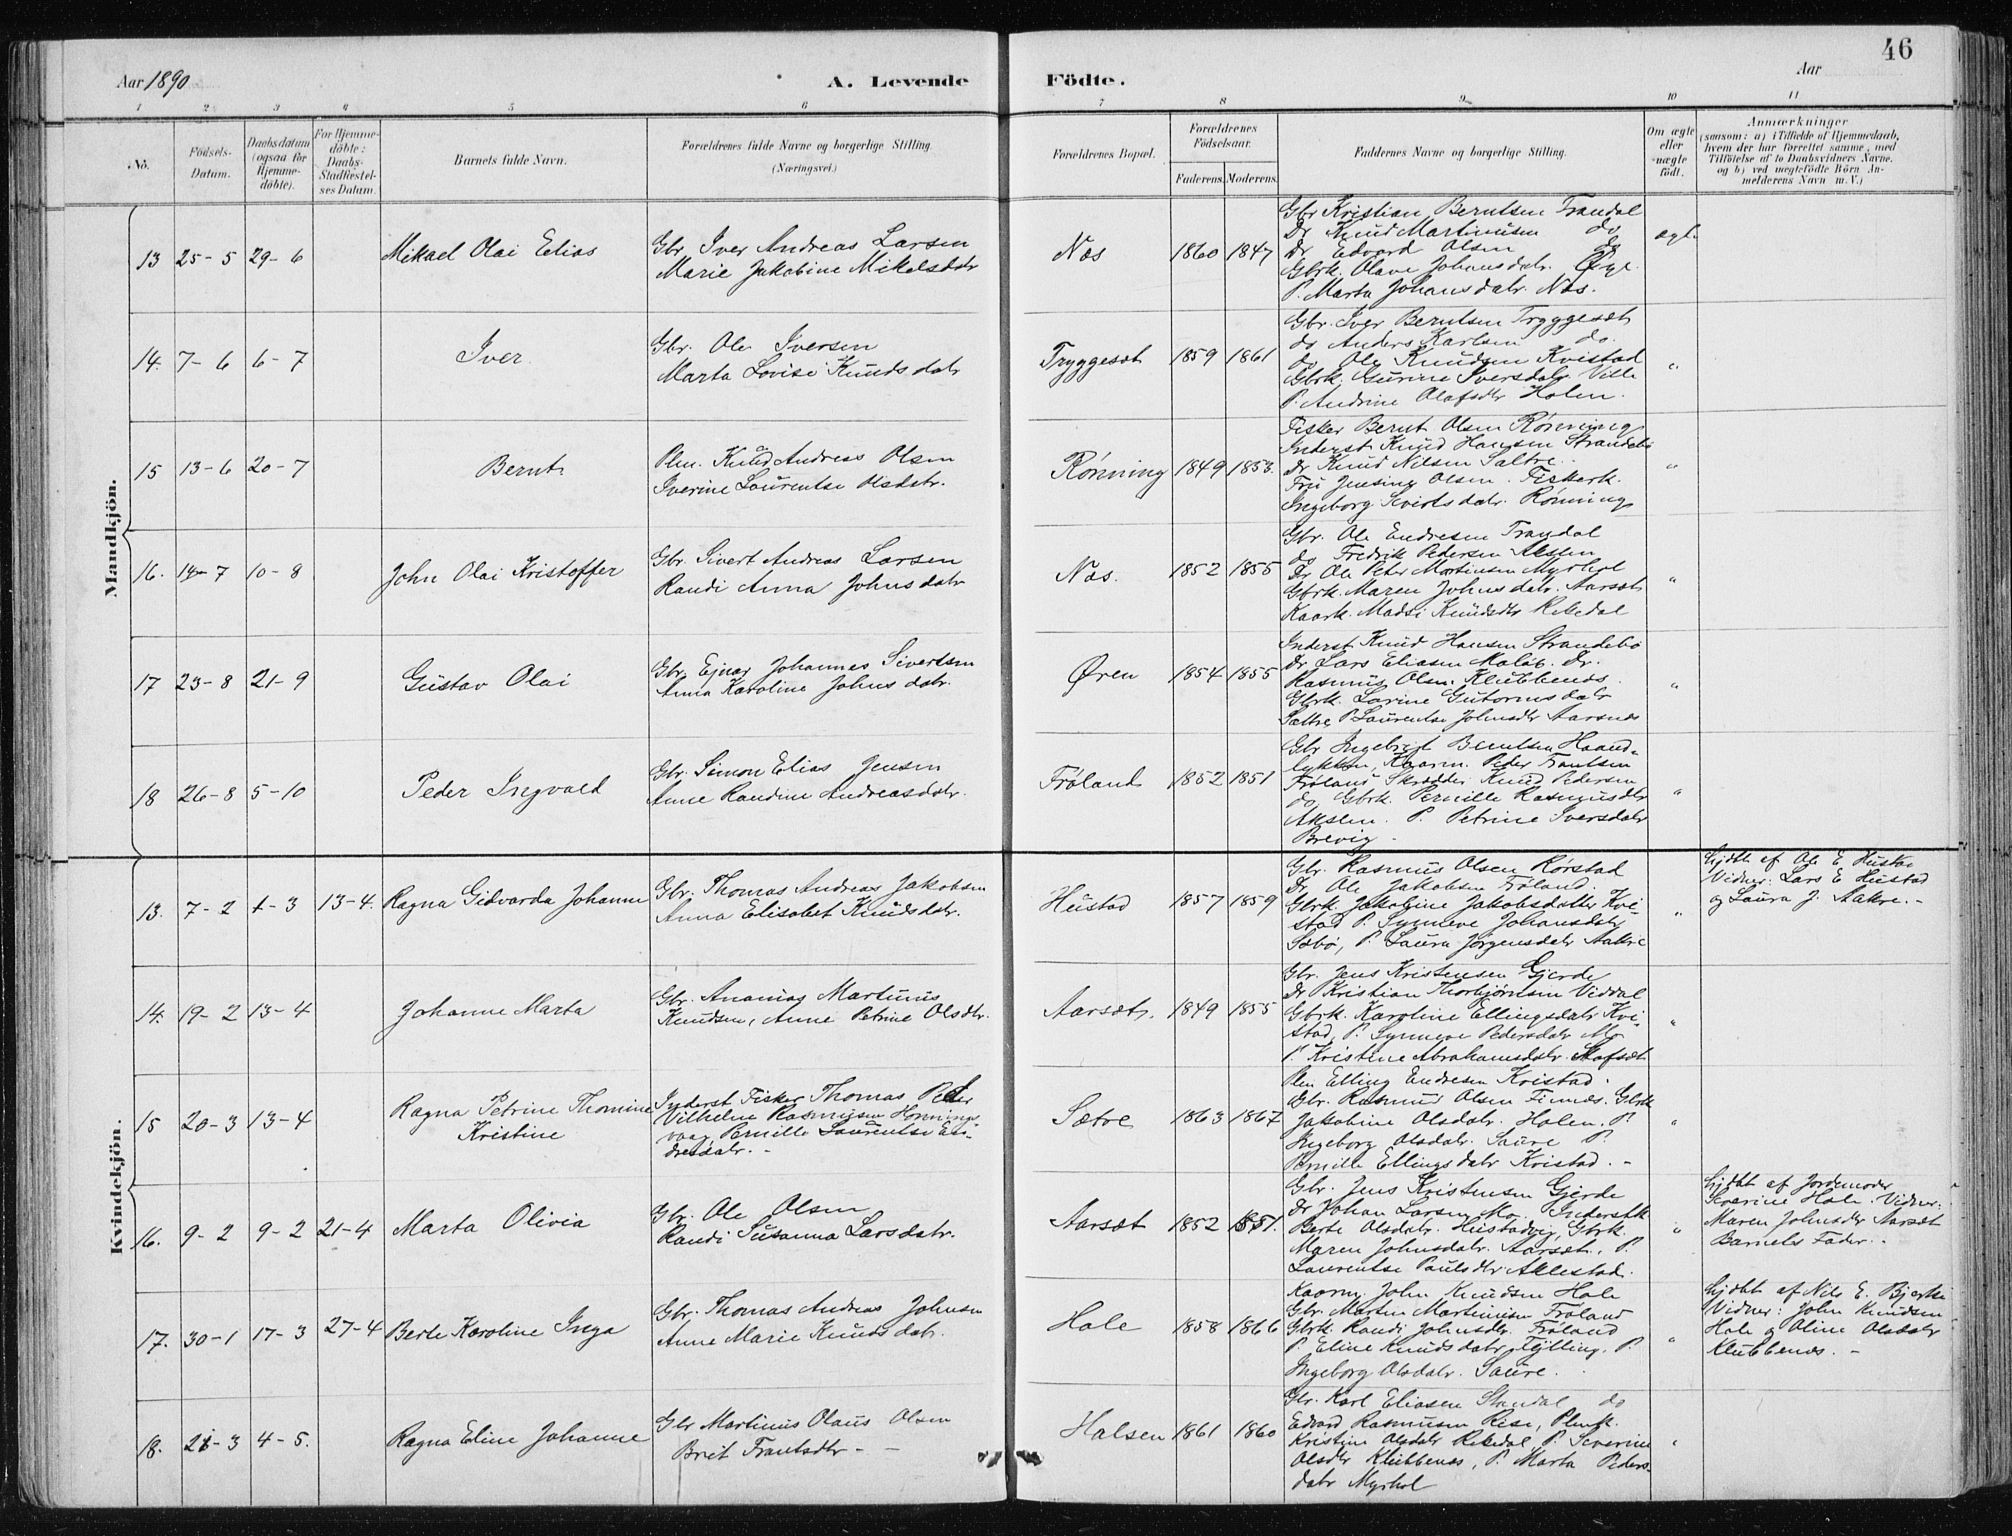 46
Aar 1890
A. Levende Födte.
Aar
1 2 3 4 5 6 7 8 9 10 11
No.
Födsels-Datum.
Daabsdatum (ogsaa for Hjemme-döbte).
For Hjemme-döbte: Daabs-Stadfæstel-ses Datum.
Barnets fulde Navn.
Forældrenes fulde Navne og borgerlige Stilling (Næringsvei.)
Forældrenes Bopæl.
Forældrenes Födselsaar.
Faderens. Moderens.
Faddernes Navne og borgerlige Stilling.
Om ægte eller uægte födt.
Anmærkninger
(saasom: a) i Tilfælde af Hjemmedaab,
hvem der har forrettet samme, med
Tilföielse af to Daabsvidners Navne.
og b) ved uægtefödte Börn An-
melderens Navn m. V.)
Mandkjön.
13 25-5 29-6 Mikael Olai Elias
Gbr. Iver Andreas Larsen
Marie Jakobine Mikelsdatr
Næs 1860 1847
Gbr Kristian Berntsen Trandal
Dr Knud Martinusen do
Dr Edvard Olsen do
Gbrk. Olave Johansdatr. Øye
P. Marta Johansdatr. Næs.
ægt.
14. 7-6 6-7 Iver.
Gbr. Ole Iversen
Marta Lovise Knudsdatr
Tryggesæt 1859 1861
Gbr. Iver Berntsen Tryggesæt
do Anders Karlsen do.
do Ole Knudsen Kvistad
Gbrk. Gurine Iversdatr Ville
P. Andrine Olafsdtr Holen.
"
15 13-6 20-7 Bernt
Plm. Knud Andreas Olsen
Iverine Laurentse Olsdatr.
Rønning 1849 1853.
Fisker Bernt Olsen Rønning
Inderst Knud Hansen Strandebø
Dr Knud Nilsen Sætre.
Fru Jensine Olsen. Fiskerk.
Ingeborg Sivertsdatr. Rønning
"
16. 14-7 10-8 John Olai Kristoffer
Gbr. Sivert Andreas Larsen
Randi Anna Johnsdatr
Næs. 1852 1855
Gbr. Ole Endresen Trandal
do Fredrik Pedersen Akslen
Dr Ole Peter Martinsen Myrhol
Gbrk. Maren Johnsdatr. Aarsæt
Kaark. Madsi Knudsdtr Rekedal
"
17 23-8 21-9 Gustav Olai
Gbr. Ejnar Johannes Sivertsen
Anna Karoline Johnsdatr.
Øren 1854 1855
Inderst Knud Hansen Strandebø
Dr Lars Eliasen Dr.
Rasmus Olsen Klubbenes.
Gbrk. Larine Gutormsdatr
Sætre P Laurentse Johnsdtr Aarsnes
"
18 26-8 5-10 Peder Ingvald
Gbr. Simon Elias Jensen
Anne Randine Andreasdatr.
Frøland 1852 1851
Gbr Ingebrigt Berntsen Haand-
lykken, Kaarm. Peder Frantsen
Frøland Skrædder Knud Pedersen
do Gbrk. Pernille Rasmusdtr
Akslen. P. Petrine Iversdatr
Brevig
"
Kvindekjön.
13. 7-2 1-3 13-4. Ragna Gidvarda Johanne
Gbr. Thomas Andreas Jakobsen
Anna Elisabet Knudsdatr.
Hustad 1857 1859
Gbr. Rasmus Olsen Rørstad
Dr Ole Jakobsen Frøland.
Gbrk. Jakobine Jakobsdatter Kvi-
stad P. Synneve Johansdatr
Sæbø, P. Laura Jørgensdatr Aakre
"
hjdbt af Ole E. Hustad
Vidner: Lars E Hustad
og Laura J. Aakre. -
14. 19-2 13-4 Johanne Marta
Gbr. Ananias Martinus
Knudsen, Anne Petrine Olsdtr.
Aarsæt. 1849 1855
Gbr. Jens Kristensen Gjerde
Dr Kristian Thorbjørnsen Viddal
Gbrk. Karoline Ellingsdatr Kvi-
stad, P. Synneve Pedersdatr Mo
P. Kristine Abrahamsdatr. Skofsæt
"
15 20-3 13-4 Ragna Petrine Thomine
Kristine
Inderst Fisker Thomas Peter
Vilhelm Rasmusen Honnings-
vaag Pernille Laurentse En-
dresdatr. -
Sætre 1863 1867
Plm Elling Endresen Kvistad.
Gbr. Rasmus Olsen Finnes. Gbrk
Jakobine Olsdatr. Holen. P.
Ingeborg Olsdatr. Saure P.
Pernille Ellingsdatr Kvistad. -
"
16. 9-2 9-2 21-4 Marta Olivia
Gbr. Ole Olsen
Randi Susanna Larsdatr.
Aarsæt 1852 1851.
Gbr. Jens Kristensen Gjerde
Dr Johan Larsen Mo. Inderstk
Berte Olsdatr. Hustadvig, Gbrk.
Maren Johnsdatr. Aarsæt. P.
Laurentse Paulsdtr Aklestad.
"
hjdbt af Jordemoder
Severine Hole. Vidner:
Maren Johnsdtr Aarsæt
Barnets Fader. -
17. 30-1 17-3 27-4 Berte Karoline Inga
Gbr. Thomas Andreas Johnsen
Anne Marie Knudsdatr.
Hole 1858 1866
Kaarm John Knudsen Hole
Gbr. Martin Martinusen Frøland
Gbrk. Randi Johnsdtr. Frøland
P. Eline Knudsdatr P.
Ingeborg Olsdatr. Saure.
"
hjdbt af Nils E. Bjerke
Vidner: John Knudsen
Hole og Oline Olsdatr
Klubbenes. -
18. 21-3 4-5. Ragna Eline Johanne
Gbr Martinus Olaus Olsen
Brit Frantsdtr - -
Halsen 1861 1860
Gbr. Karl Eliasen Standal do
Edvard Rasmusen Rise, Plmk.
Kristine Olsdatr Rekedal, P. Severine
Olsdtr Klubbenes, P. Marta Peders-
datr Myrhol
"